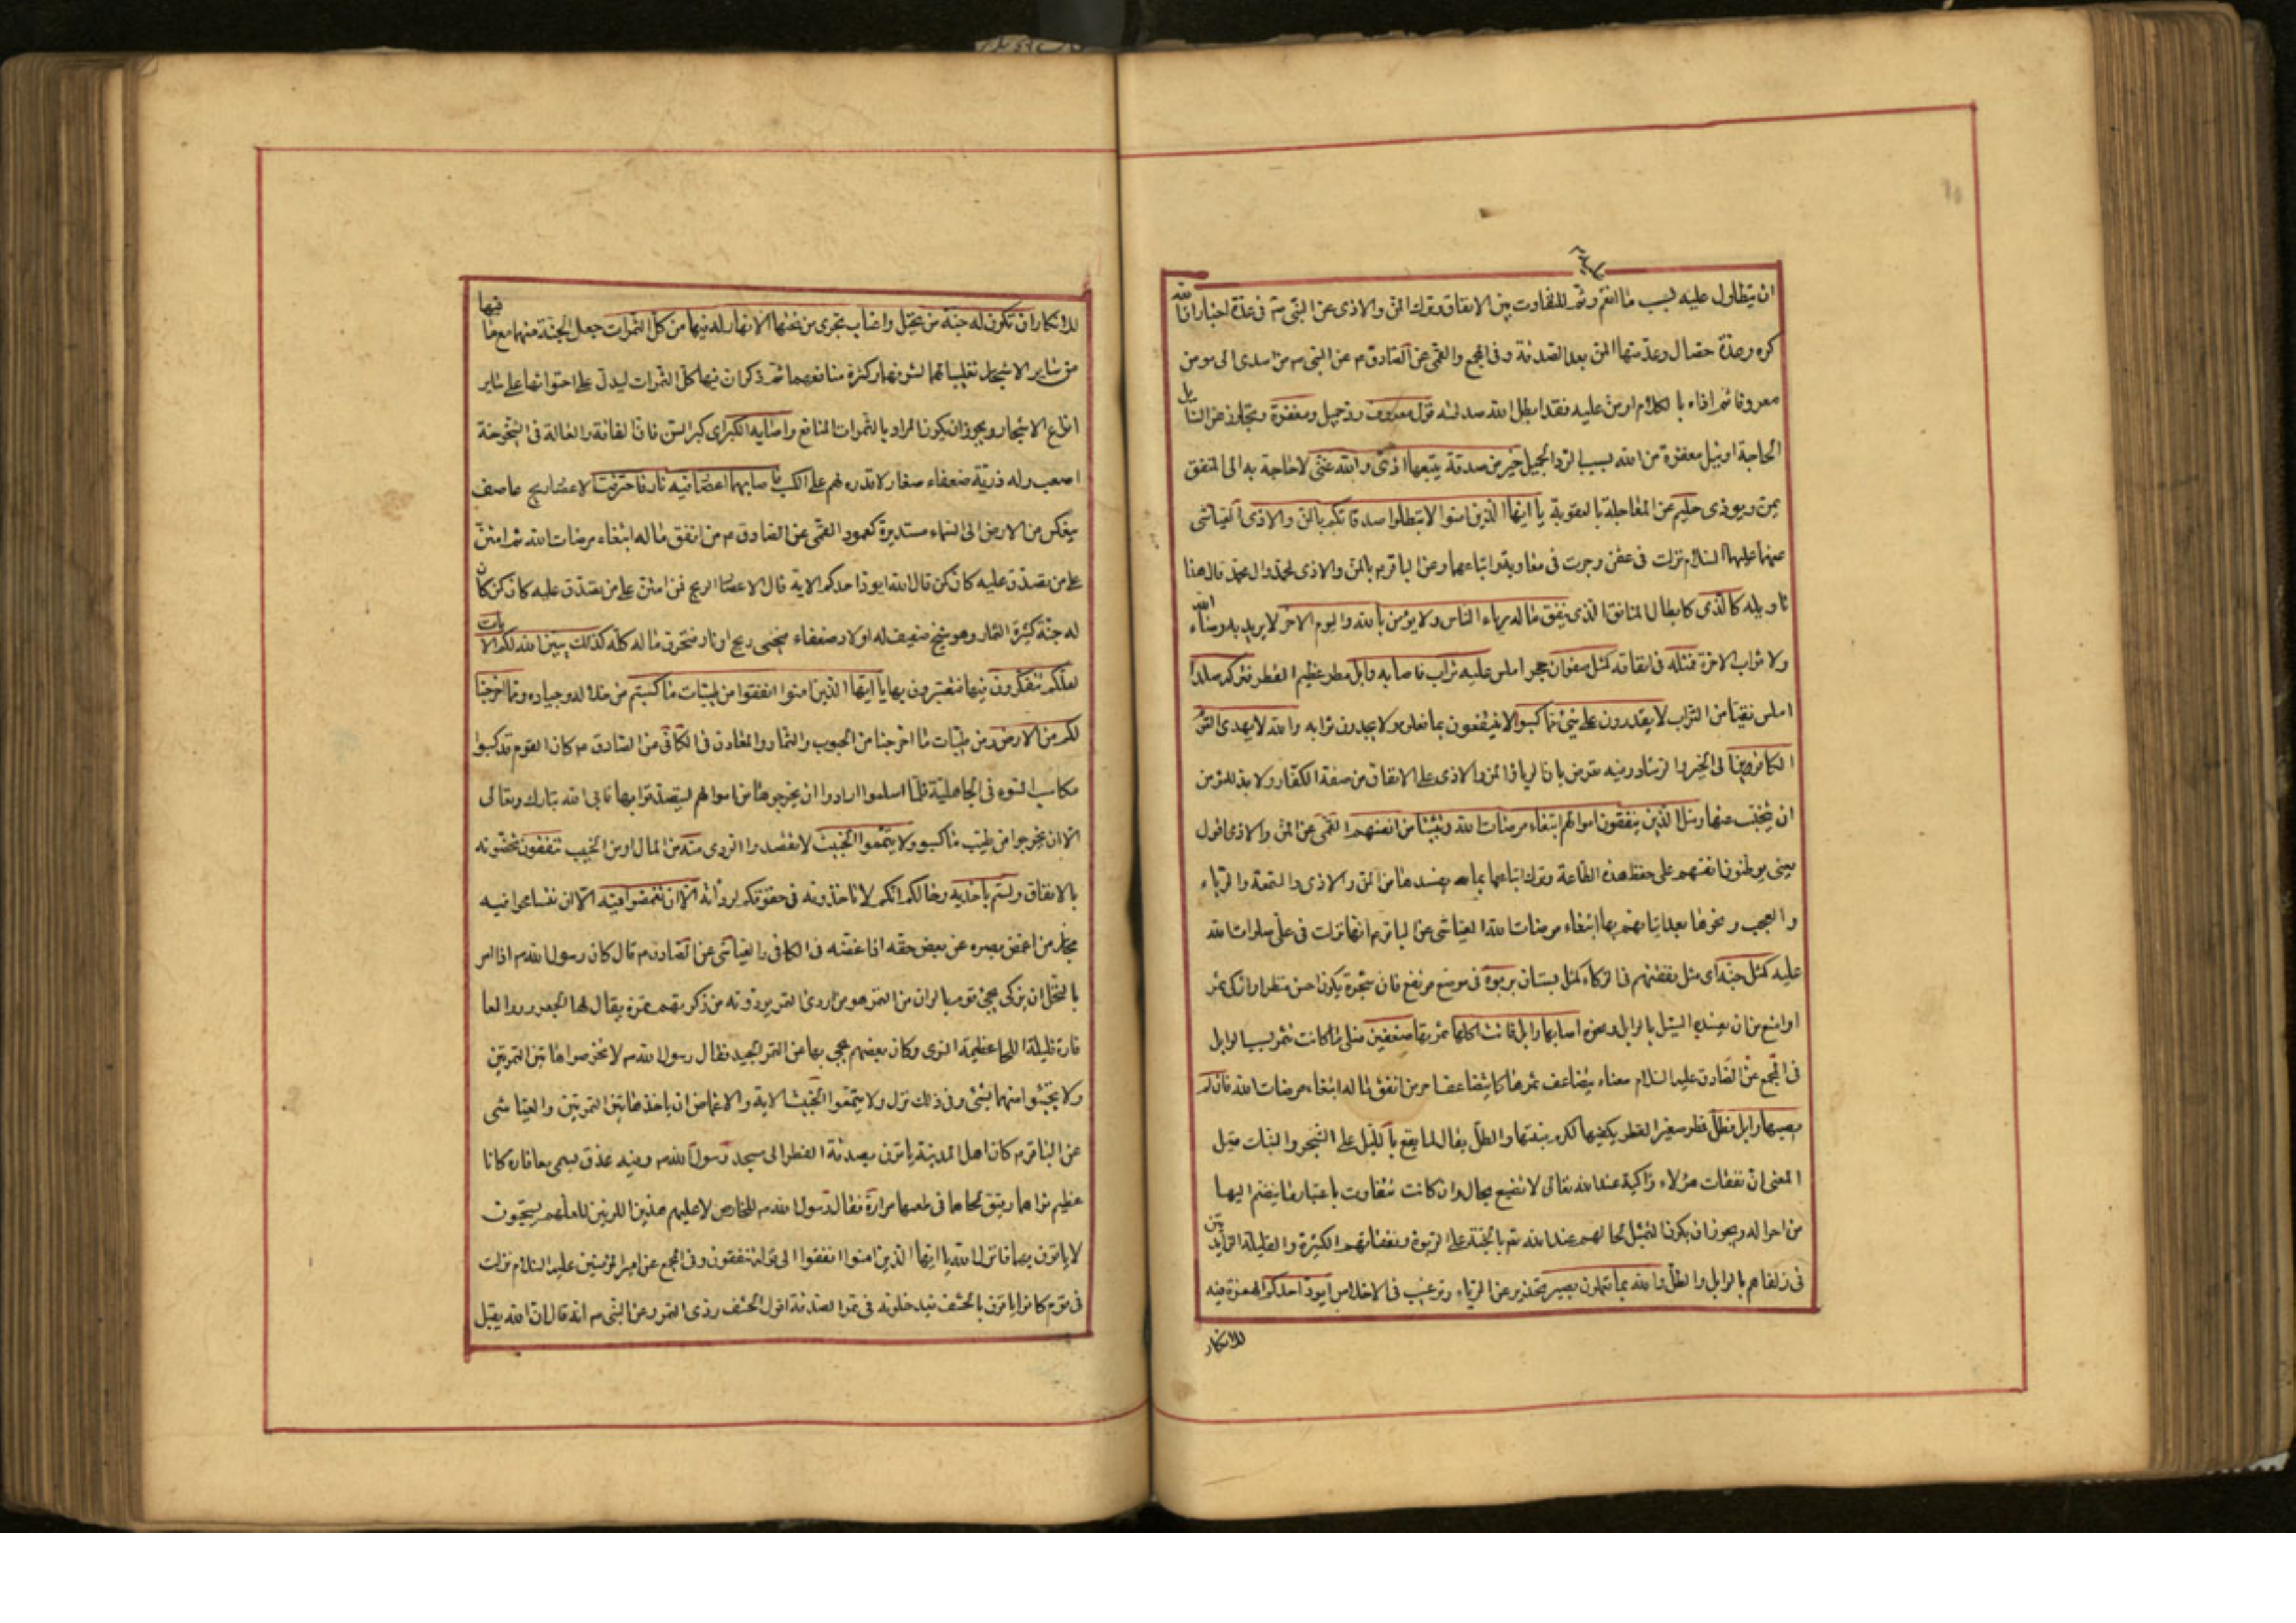 ان يتطاول عليه بسبب ما انعم وثم للتفاوت بين الانفاق وترك المن والاذى عن النبي ص في عدة اخبار ان الله
كره وعدة خصال وعد منها المن بعد الصدقة وفي المجمع والقمي عن الصادق م عن النبي ص من اسدى الى مومن
معروفا ثم اذاه بالكلام او من عليه فقد ابطل الله صدقته قول معروف رد جميل ومغفرة وتجاوز عن السائل
الحاجة او نيل مغفرة من الله بسبب الرد الجميل خير من صدقة يتبعها اذى والله غني لا حاجة به الى المنفق
يمن ويوذي حليم عن المعاجلة بالعقوبة يا ايها الذين امنوا لا تبطلوا صدقاتكم بالمن والاذى العياشي
عنهما عليهما السلام نزلت في عثمن وجرت في معاوية واتباعهما وعن الباقر م بالمن والاذى لمحمد وال محمد قال هذا
تاويله كالذي كابطال المنافق الذي ينفق ماله رياء الناس ولا يؤمن بالله واليوم الاخر لا يريد به رضاء الله
ولا ثواب الاخرة فمثله في انفاقه كمثل صفوان حجر املس عليه تراب فاصابه وابل مطر عظيم القطر فتركه صلدا
املس نقيا من التراب لا يقدرون على شيئ مما كسبوا لا ينتفعون بما فعلوا ولا يجدون ثوابه والله لا يهدي القوم
الكافرين الى الخير والرشاد وفيه تعريض بان الرياء والمن والاذى على الانفاق من صفة الكفار ولا بد للمؤمن
ان يتجنب عنها ومثل الذين ينفقون اموالهم ابتغاء مرضات الله وتثبيتا من انفسهم القمي عن المن والاذى اقول
يعني يوطنون انفسهم على حفظ هذه الطاعة وترك اتباعها بما يفسدها من المن والاذى والسمعة والرياء
والعجب ونحوها بعد اتيانهم بها ابتغاء مرضات الله العياشي عن الباقر م انها نزلت في علي صلوات الله
عليه كمثل جنة اي مثل نفقتهم في الزكاء كمثل بستان بربوة في موضع مرتفع فان شجرة يكون احسن منظرا وازكى ثمرا
او امنع من ان يفسده السيل بالوابل ونحوه اصابها وابل فاتت اكلها ثمرتها ضعفين مثلي ما كانت تثمر بسبب الوابل
في المجمع عن الصادق عليه السلام معناه يتضاعف ثمرها كما يتضاعف اجر من انفق ماله ابتغاء مرضات الله فان لم
يصبها وابل فطل فطر صغير القطر يكفيها لكرم منبتها والطل يقال لما يقع بالليل على الشجر والنبات قيل
المعنى ان نفقات هؤلاء زاكية عند الله تعالى لا تضيع بحال وان كانت تتفاوت باعتبار ما ينضم اليها
من احواله ويجوز ان يكون التمثيل لحالهم عند الله تع بالجنة على الربوة ونفقاتهم الكثيرة والقليلة الزايدتين
في زلفاهم بالوابل والطل والله بما تعملون بصير تحذير عن الرياء وترغيب في الاخلاص ايود احدكم الهمزة فيه
للانكار
للانكار ان تكون له جنة من نخيل واعناب تجري من تحتها الانهار له فيها من كل الثمرات جعل الجنة منهما مع ما فيها
من ساير الاشجار تغليبا لهما لشرفهما وكثرة منافعهما ثم ذكر ان فيها كل الثمرات ليدل على احتوائها على ساير
انواع الاشجار ويجوز ان يكون المراد بالثمرات المنافع واصابه الكبر اي كبر السن فان الفاقة والعالة في الشيخوخة
اصعب وله ذرية ضعفاء صغار لا قدرة لهم على الكسب فاصابها اعصار فيه نار فاحترقت الاعصار ريح عاصف
ينعكس من الارض الى السماء مستديرة كعمود القمي عن الصادق م من انفق ماله ابتغاء مرضات الله ثم امتن
على من تصدق عليه كان كمن قال الله ايود احدكم الاية قال الاعصار الريح فمن امتن على من تصدق عليه كان كمن كان
له جنة كثيرة الثمار وهو شيخ ضعيف له اولاد ضعفاء فيجئ ريح او نار فتحرق ماله كله كذلك يبين الله لكم الايات
لعلكم تتفكرون فيها فتعتبرون بها يا ايها الذين امنوا انفقوا من طيبات ما كسبتم من حلاله وجياده ومما اخرجنا
لكم من الارض ومن طيبات ما اخرجنا من الحبوب والثمار والمعادن في الكافي عن الصادق م كان القوم قد كسبوا
مكاسب السوء في الجاهلية فلما اسلموا ارادوا ان يخرجوها من اموالهم ليتصدقوا بها فابى الله تبارك وتعالى
الا ان يخرجوا من طيب ما كسبوا ولا تيمموا الخبيث لا تقصدوا الردي منه من المال او من الخبيث تنفقون تخصونه
بالانفاق ولستم باخذيه وحالكم انكم لا تاخذونه في حقوقكم لردائته الا ان تغمضوا فيه الا ان تتسامحوا فيه
مجاز من اغمض بصره عن بعض حقه اذا غضه في الكافي والعياشي عن الصادق م قال كان رسول الله ص اذا امر
بالنخل ان يزكى يجئ قوم بالوان من التمر هو من اردئ التمر يودونه من زكوتهم تمرة يقال لها الجعرور والمعا
فارة قليلة اللحا عظيمة النوى وكان بعضهم يجئ بها عن التمر الجيد فقال رسول الله ص لا تخرصوا هاتين التمرتين
ولا يجيئوا منهما بشئ وفي ذلك نزل ولا تيمموا الخبيث الاية والاغماض ان ياخذ هاتين التمرتين والعياشي
عن الباقر م كان اهل المدينة ياتون بصدقة الفطر الى مسجد رسول الله ص وفيه عذق يسمى معافاره كانا
عظيم نواهما رقيق لحاهما في طعمهما مرارة فقال رسول الله ص للخارص لا عليهم هذين اللونين لعلهم يستحيون
لا ياتون بهما فانزل الله يا ايها الذين امنوا انفقوا الى قوله تنفقون وفي المجمع عن امير المؤمنين عليه السلام نزلت
في قوم كانوا ياتون بالحشف فيدخلونه في تمر الصدقة اقول الحشف ردى التمر وعن النبي ص انه قال ان الله يقبل